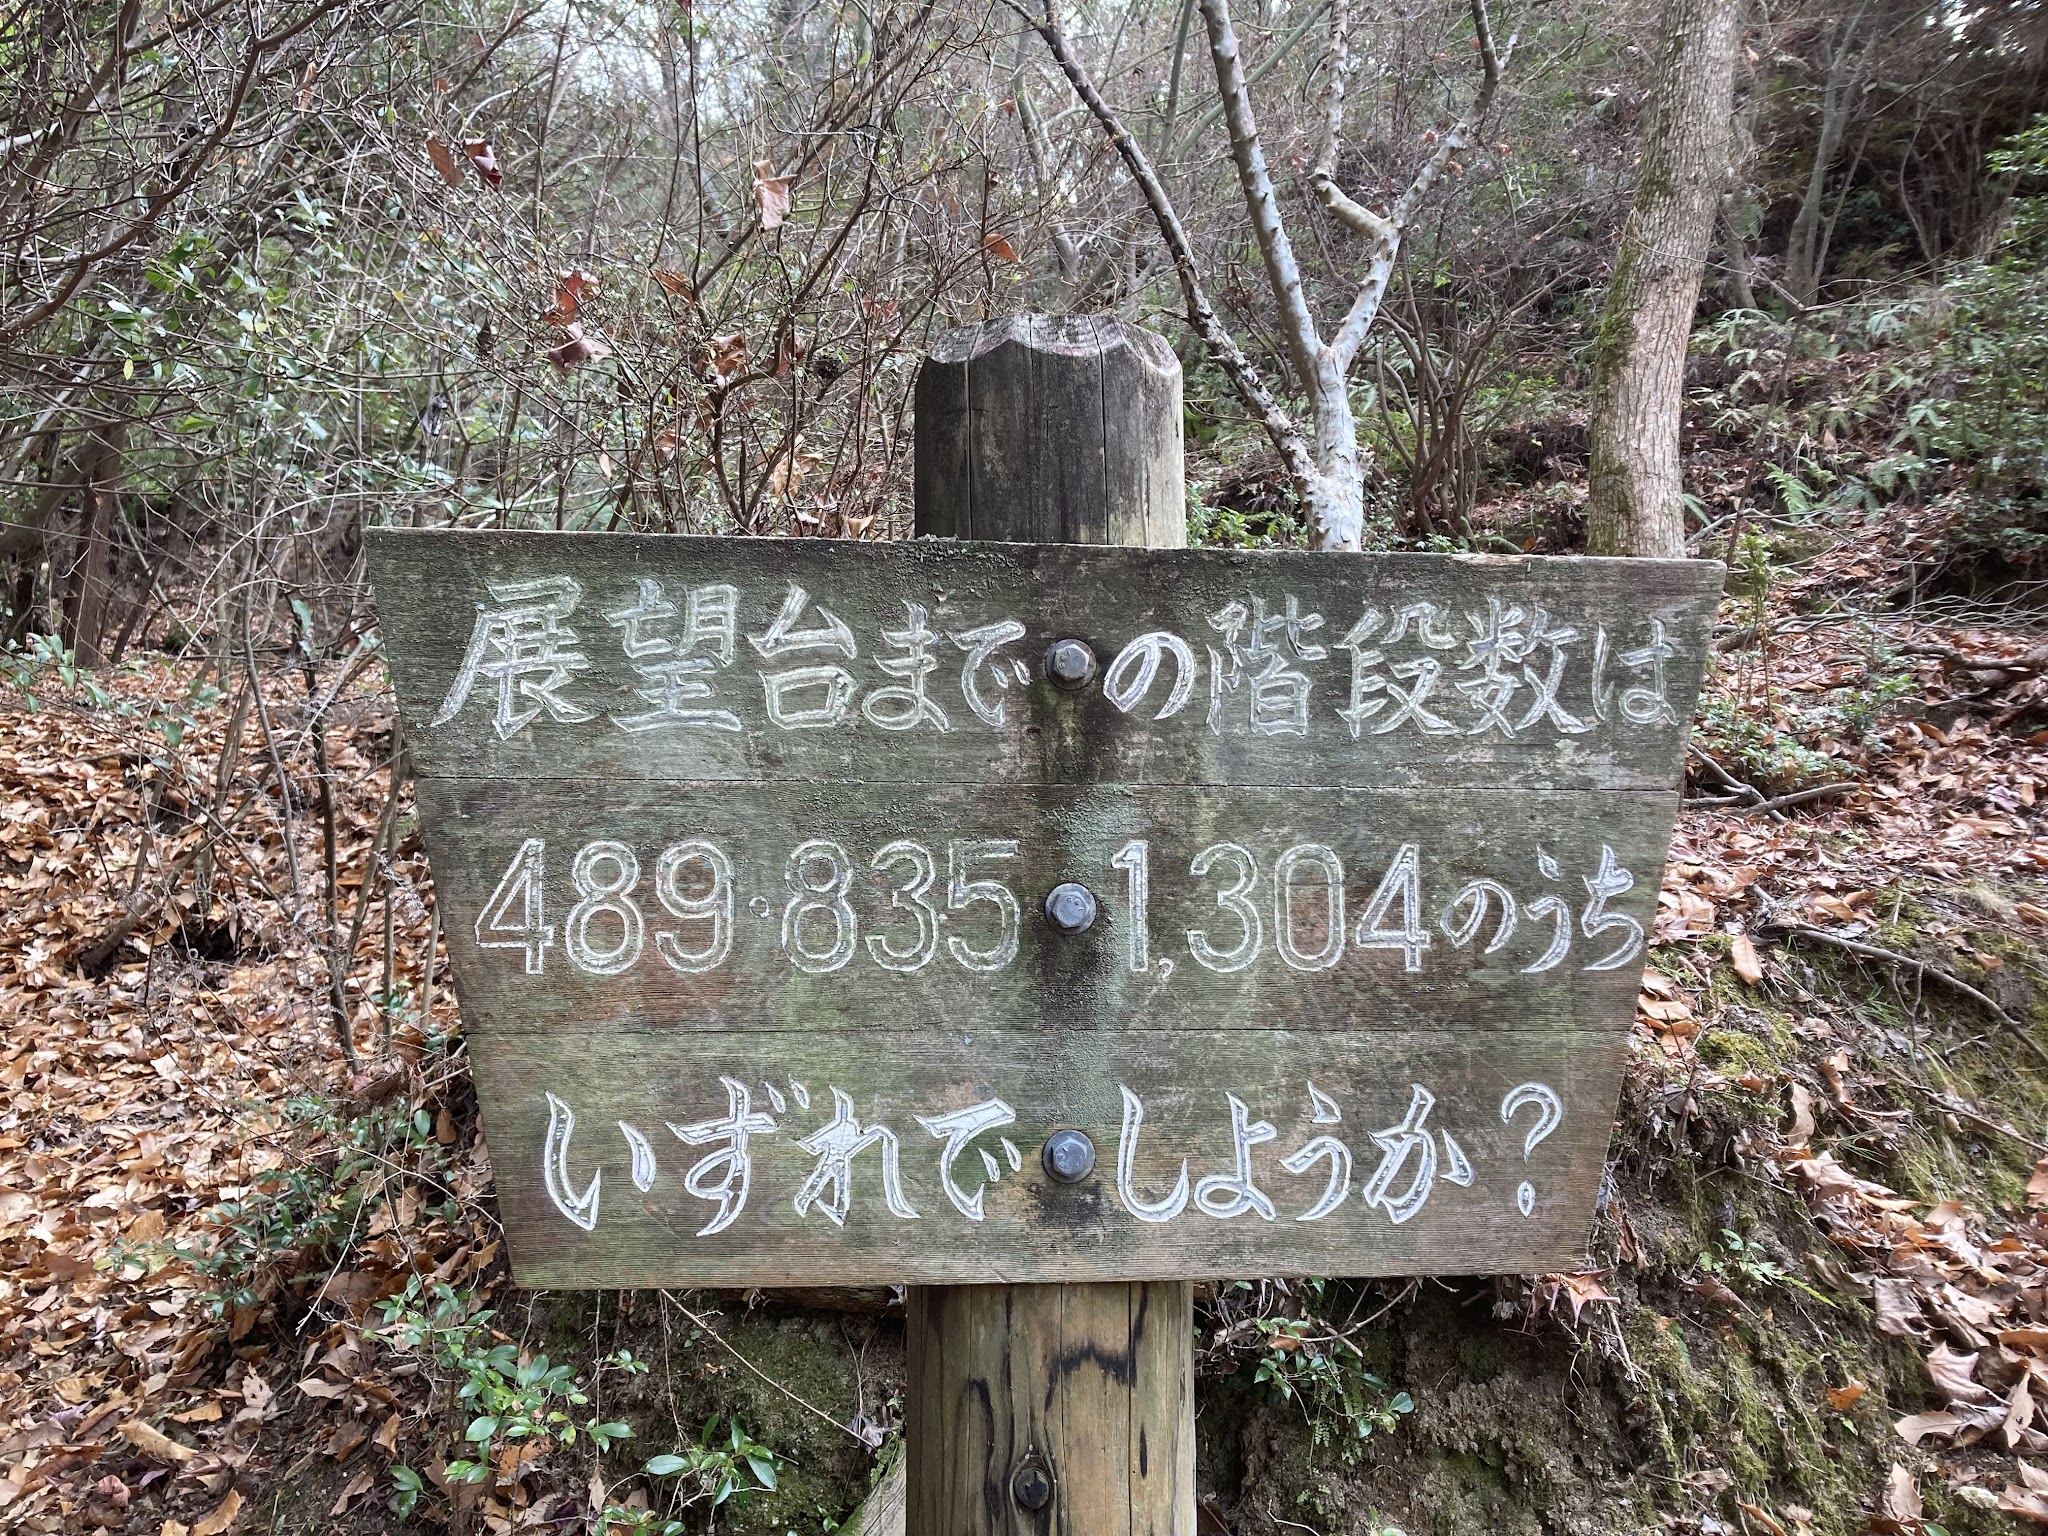 展望台までの階段数は
489・835・1,304のうち
いずれでしょうか?